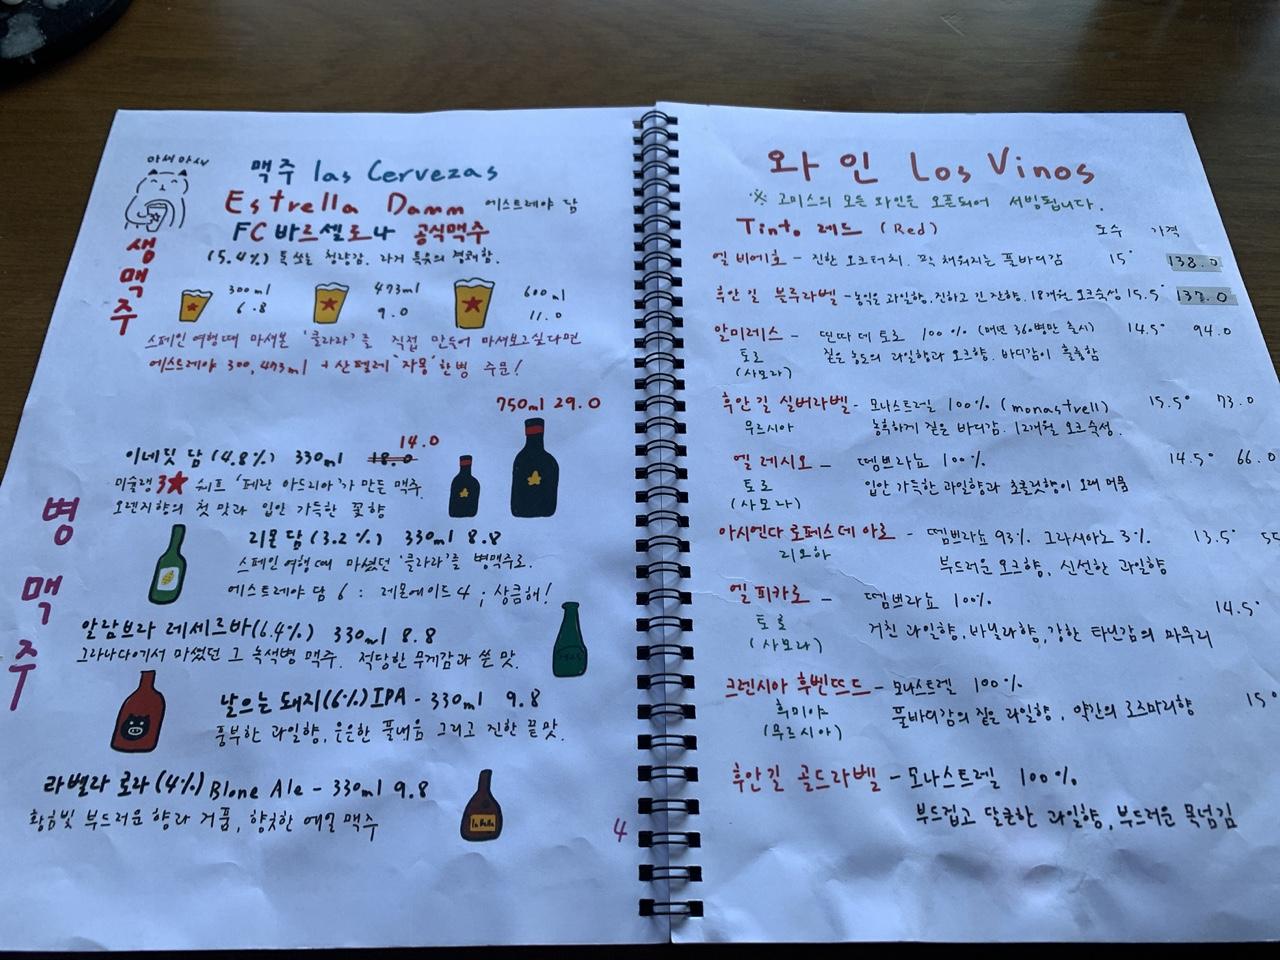 아싸아싸
맥주 las Cervezas
Estrella Damm 에스트레야 담
FC 바르셀로나 공식맥주
(5.4%) 톡 쏘는 청량감. 라거 특유의 경쾌함.
생맥주
300ml 6.8
473ml 9.0
600ml 11.0
스페인 여행때 마셔본 '클라라'를 직접 만들어 마셔보고싶다면
에스트레야 300,473ml + 산펠레 '자몽' 한병 주문!
750ml 29.0
14.0
이네딧 담 (4.8%) 330ml 18.0
미슐랭 3★ 쉐프 '페란 아드리아'가 만든 맥주.
오렌지향의 첫 맛과 입안 가득한 꽃향
병맥주
리몬 담 (3.2%) 330ml 8.8
스페인 여행때 마셨던 '클라라'를 병맥주로.
에스트레야 담 6 : 레몬에이드 4 ; 상큼해!
알람브라 레세르바(6.4%) 330ml 8.8
그라나다에서 마셨던 그 녹색병 맥주. 적당한 무게감과 쓴 맛.
날으는 돼지(6%) IPA - 330ml 9.8
풍부한 과일향, 은은한 풀내음 그리고 진한 끝맛.
라벨라 로라 (4%) Blone Ale - 330ml 9.8
황금빛 부드러운 향과 거품, 향긋한 에일 맥주
la Bella
4
와인 Los Vinos
※ 고미스의 모든 와인은 오픈되어 서빙됩니다.
Tinto 레드 (Red) 도수 가격
엘 비에호 - 진한 오크터치. 꽉 채워지는 풀바디감 15° 138.0
후안 길 블루라벨 - 농익은 과일향. 진하고 긴 잔향. 18개월 오크숙성 15.5° 137.0
알미레스 - 띤따 데 토로 100% (매년 360병만 출시) 14.5° 94.0
토로 짙은 농도의 과일향과 오크향. 바디감이 출중함
(사모라)
후안 길 실버라벨 - 모나스트렐 100% (monastrell) 15.5° 73.0
무르시아 농축하게 짙은 바디감. 12개월 오크숙성.
엘 레시오 - 뗌쁘라뇨 100% 14.5° 66.0
토로 입안 가득한 과일향과 초콜릿향이 오래 머뭄
(사모라)
아시엔다 로페스 데 아로 - 뗌쁘라뇨 93% 그라시아노 3% 13.5° 55
리오하 부드러운 오크향, 신선한 과일향
엘 피카로 - 뗌쁘라뇨 100% 14.5°
토로 거친 과일향, 바닐라향, 강한 타닌감의 마무리
(사모라)
크렌시아 후벤뜨드 - 모나스트렐 100% 15°
희미야 풀바디감의 짙은 과일향, 약간의 로즈마리향
(무르시아)
후안길 골드라벨 - 모나스트렐 100%
부드럽고 달큰한 과일향, 부드러운 목넘김